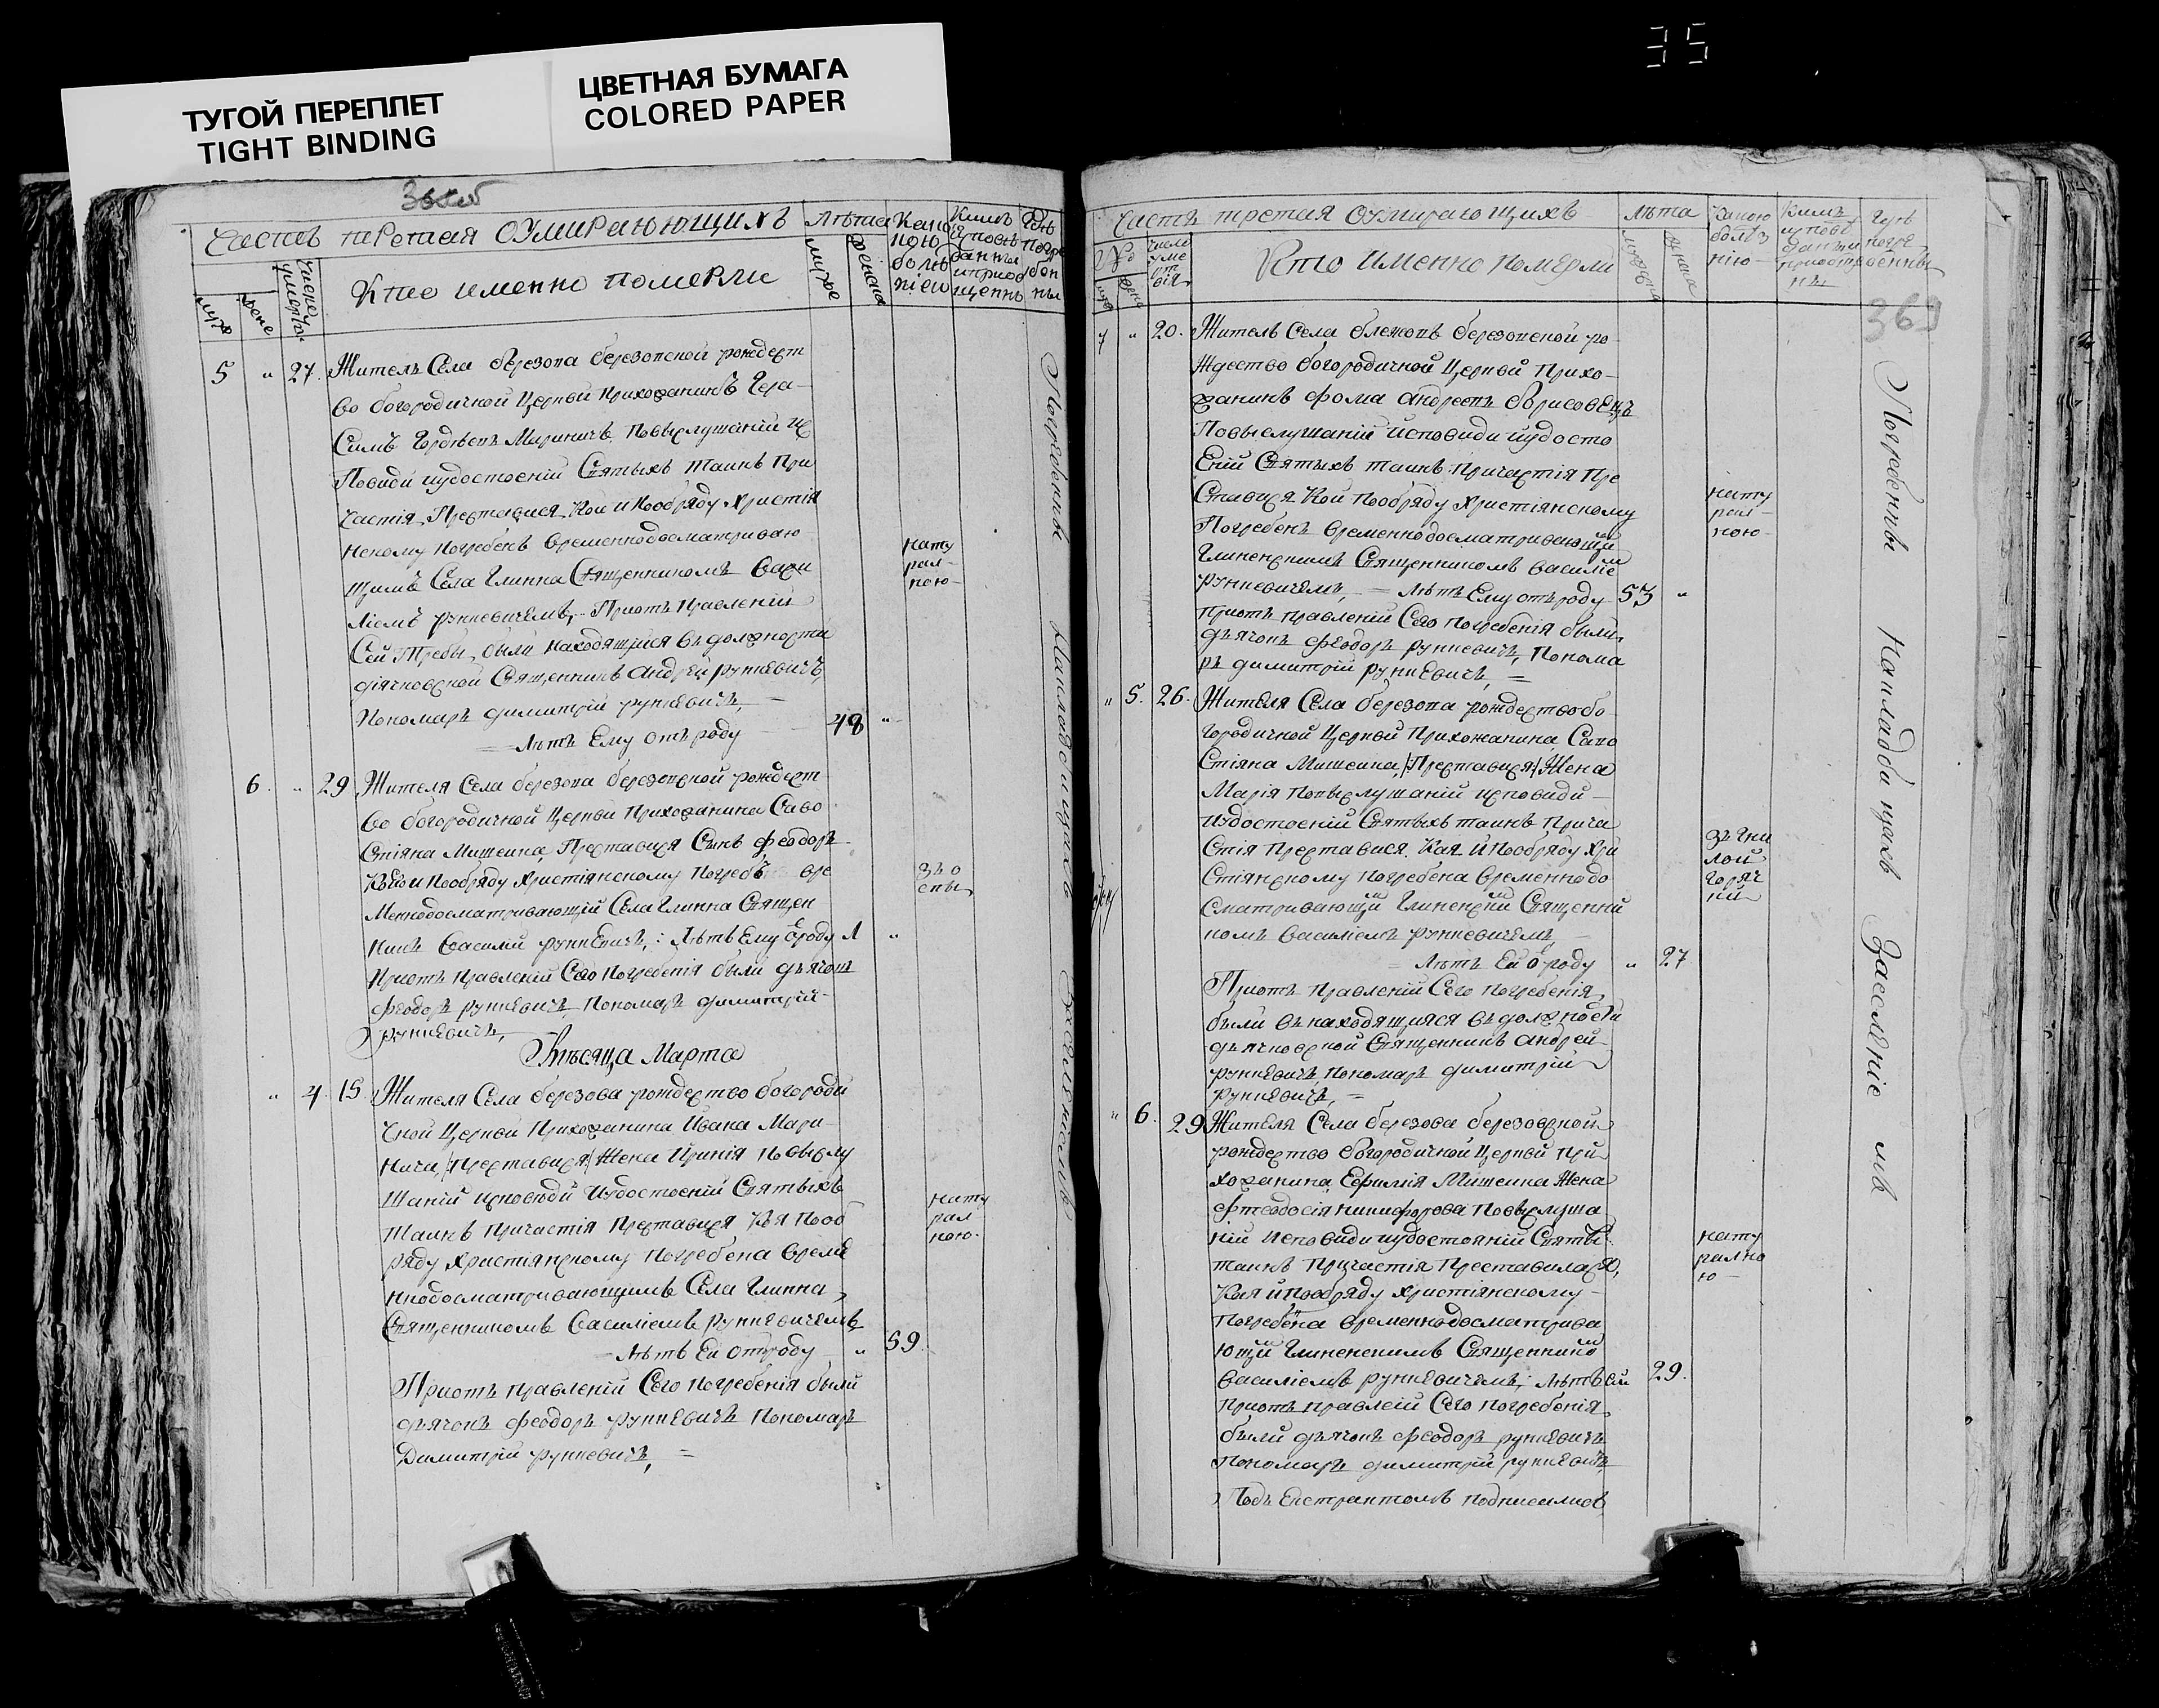 ТУГОЙ ПЕРЕПЛЕТ
TIGHT BINDING
ЦВЕТНАЯ БУМАГА
COLORED PAPER
35
Часть третая оумирающихъ
Лѣта
Какою
болѣ
знію
Кимъ
исповѣ
данны
и приоб
щенны
Гдѣ
погре
бен
ны
муж
жене
число
умертв.
Кто именно померли
муже
женска
5 " 27. Житель Села березова березовской рождест
во богородичной Церкви Прихожанинъ Гера
симъ Гордѣевъ Мариничъ, Повыслушаніи ис
повиди иудостоеніи Святыхъ Таинъ При
частія, Преставися, Кой и Пообряду Христія
нскому погребенъ временнодосматриваю
щимъ Села Глинна Священникомъ Васи
ліемъ рункевичемъ, Приотъ правленіи
Сей Требы, были находящійся въ должности
дячковской Священникъ Андрей рункевичъ,
Пономаръ димитрій рункевичъ,
Лѣтъ Ему отъ роду 48 "
нату
рал
ною
6. " 29 Жителя Села березова березовской рождест
во богородичной Церкви Прихожанина Саво
стіяна Мишеина, Преставися Сынъ феодоръ
Кого и пообряду Христіянскому Погребъ вре
меннодосматривающій Села Глинна Священ
никъ Василій рункевичъ, : Лѣтъ Ему ѿроду 1 "
Приотъ правленіи Сего Погребенія были дьячокъ
феодоръ рункевичъ, Пономаръ димитрій
рункевичъ,
зъ о
спы
Мѣсяца Марта
" 4. 15. Жителя Села березова рождество богороди
чной Церкви Прихожанина Ивана Мари
нича, /Преставися/ Жена Иринія повыслу
шаніи исповѣди Иудостоеніи Святыхъ
Таинъ Причастія Преставися Кая Пооб
ряду Христіянскому Погребена време
ннодосматривающимъ Села Глинна
Священникомъ Василіемъ рункевичемъ
Лѣтъ Ей отъроду " 59.
Приотъ правленіи Сего погребенія были
дьячокъ феодоръ рункевичъ Пономаръ
Димитрій рункевичъ,
нату
рал
ною.
Погребенны Накладбищахъ
Часть третая оумирающихъ
лѣта
Какою
болѣз
нію
Кимъ
исповѣ
данъ и
приобще
ны
Гдѣ
погре
бенны
число
уме
рт
вія
Кто именно померли
мужеска
женска
369
7 " 20. Житель Села березовской ро
ждество богородичной Церкви Прихо
жанинъ фома Андреевъ борисовецъ
Повыслушаніи исповиди иудосто
еніи Святыхъ таинъ Причастія Пре
ставися Кой Пообряду Христіянскому
Погребенъ временнодосматривающим
Глиненскимъ Священникомъ василіем
рункевичемъ, = Лѣтъ Ему отъроду 53 "
приотъ правленіи Сего погребенія были,
дьячокъ феодоръ рункевичъ, Понома
ръ димитрій рункевичъ, =
нату
рал
ною
" 5. 26. Жителя Села березова рождество бо
городичной Церкви Прихожанина Саво
стіяна Мишеина, /Преставися/ Жена
Марія повыслушаніи исповиди
иудостоеніи Святыхъ таинъ Прича
стія Преставися. Кая и Пообряду Хри
стіянскому погребена временнодо
сматривающим Глиненским Священни
комъ василіемъ рункевичемъ,
Лѣтъ Ей ѿроду " 27
Приотъ правленіи Сего погребенія
были въ находящися въ должности
дьячковской Священникъ Андрей
рункевичъ, Пономаръ димитрій
рункевичъ, =
зъ гни
лой
горяч
ки
" 6. 29 Жителя Села березова березовской
рождество богородичной Церкви При
хожанина, Ефимія Мишеина Жена
фтеодосія никифорова Повыслуша
ніи исповиди иудостояніи Святы
таинъ Причастія Преставилася,
Кая и пообряду христіянскому
погребена временнодосматрива
ющим Глиненскимъ Священником
василіемъ рункевичемъ; лѣтъ ей 29.
приотъ правлеіи Сего погребенія
были дьячокъ феодоръ рункевичъ
пономаръ димитрій рункевичъ,
нату
рално
ю
Подъ Екстрактомъ подписались
Погребенны Накладбищахъ Заселеніемъ